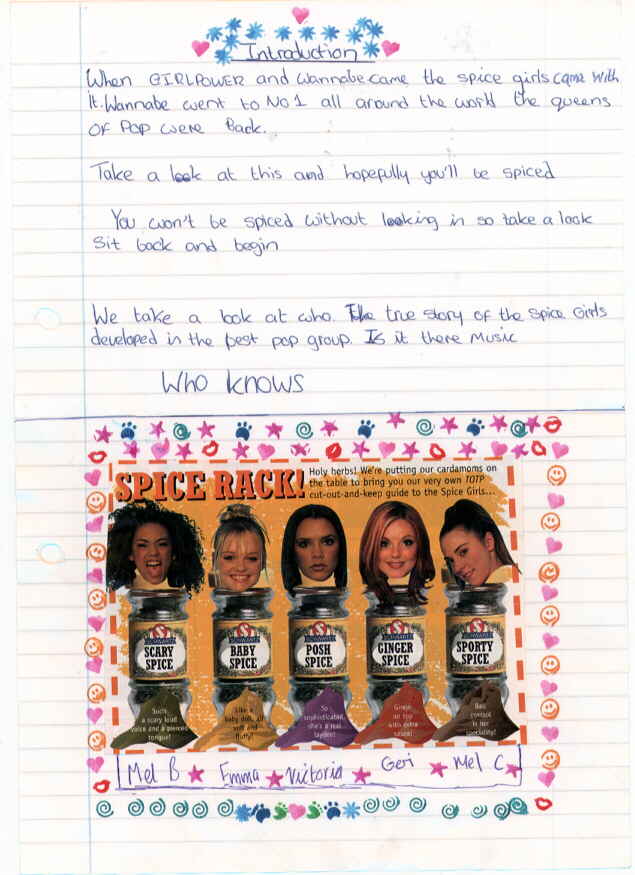 Introduction
When GIRLPOWER and Wannabe came the spice girls came with
It. Wannabe went to No 1 all around the world the queens
OF POP were Back.
Take a look at this and hopefully you'll be spiced
You won't be spiced without looking in so take a look
Sit back and begin
We take a look at who. The true story of the Spice Girls
developed in the best pop group. Is it there Music
Who knows
SPICE RACK!
Holy herbs! We're putting our cardamoms on
the table to bring you our very own TOTP
cut-out-and-keep guide to the Spice Girls...
SCARY
SPICE
BABY
SPICE
POSH
SPICE
GINGER
SPICE
SPORTY
SPICE
a scary loud
voice and a pierced
tongue!
Like a
baby doll, all
soft and
fluffy!
So
sophisticated,
she's a real
on top
with extra
Ball
control
is her
speciality!
Mel B Emma Victoria Geri Mel C